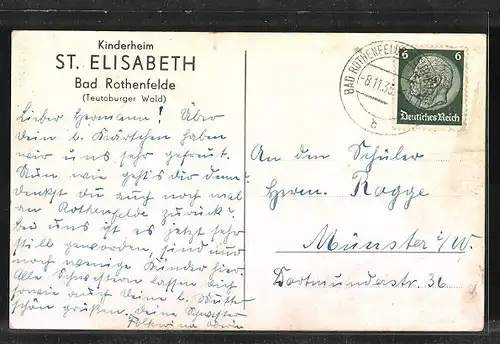 Kinderheim
ST. ELISABETH
Bad Rothenfelde
(Teutoburger Wald)
Lieber Hermann! Über
dein b. Kärtchen haben
wir uns sehr gefreut.
Nun wie geht's dir denn?
denkst du auch noch mal
an Rothenfelde zurück?
bei uns ist es jetzt sehr
still geworden, sind nur
noch wenige Kinder hier.
Alle Schwestern lassen dich
sowie auch deine b. Mutter
schön grüßen. deine Schwester
BAD ROTHENFELDE
-8.11.35
b
6 6
Deutsches Reich
An den Schüler
Herrn. Rogge
Münster i/W.
Dortmunderstr. 36